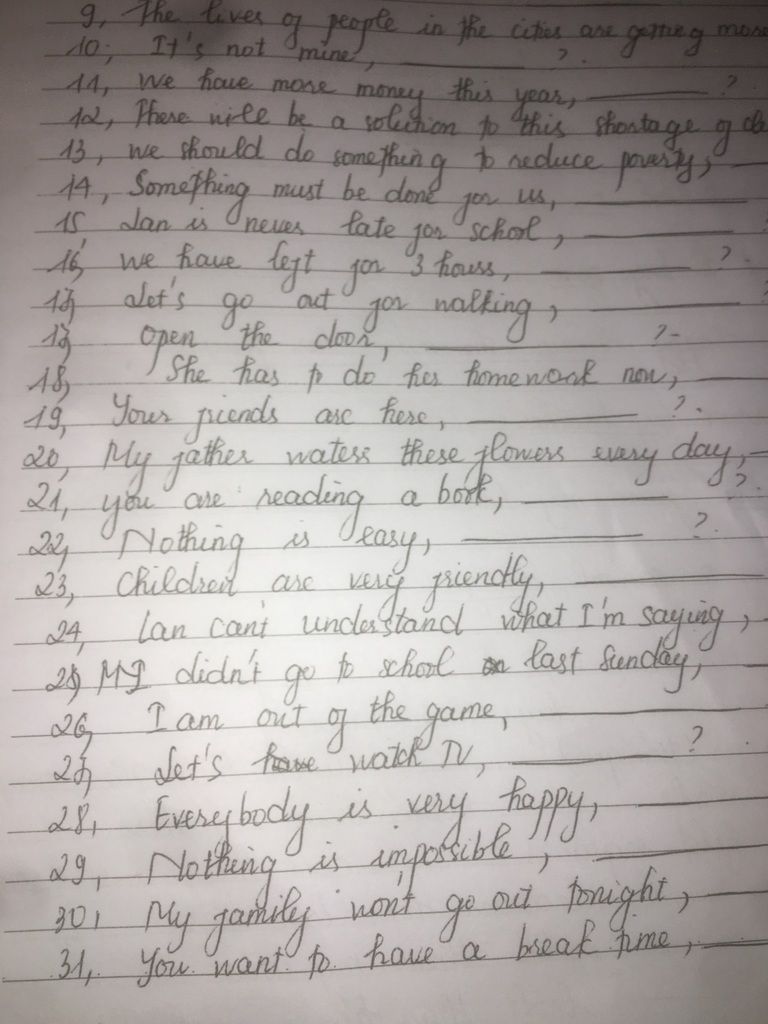 9, The lives of people in the cities are getting more
10, It's not mine, ________ ?
11, we have more money this year, ________ ?
12, There will be a solution to this shortage of
13, we should do something to reduce poverty, ____
14, Something must be done for us, ________
15 Lan is never late for school, ________ ?
16, we have left for 3 hours, ________ ?
17, Let's go out for walking, ________ ?
17, Open the door, ________ ?
18, She has to do her homework now, ____
19, Your friends are here, ________ ?
20, My father waters these flowers every day, ____
21, you are reading a book, ________ ?
22, Nothing is easy, ________ ?
23, Children are very friendly, ________
24, Lan can't understand what I'm saying,
25, I didn't go to school last Sunday,
26, I am out of the game, ________
27, Let's watch TV, ________ ?
28, Everybody is very happy, ________
29, Nothing is impossible, ________
30, My family won't go out tonight, ____
31, You want to have a break time, ____